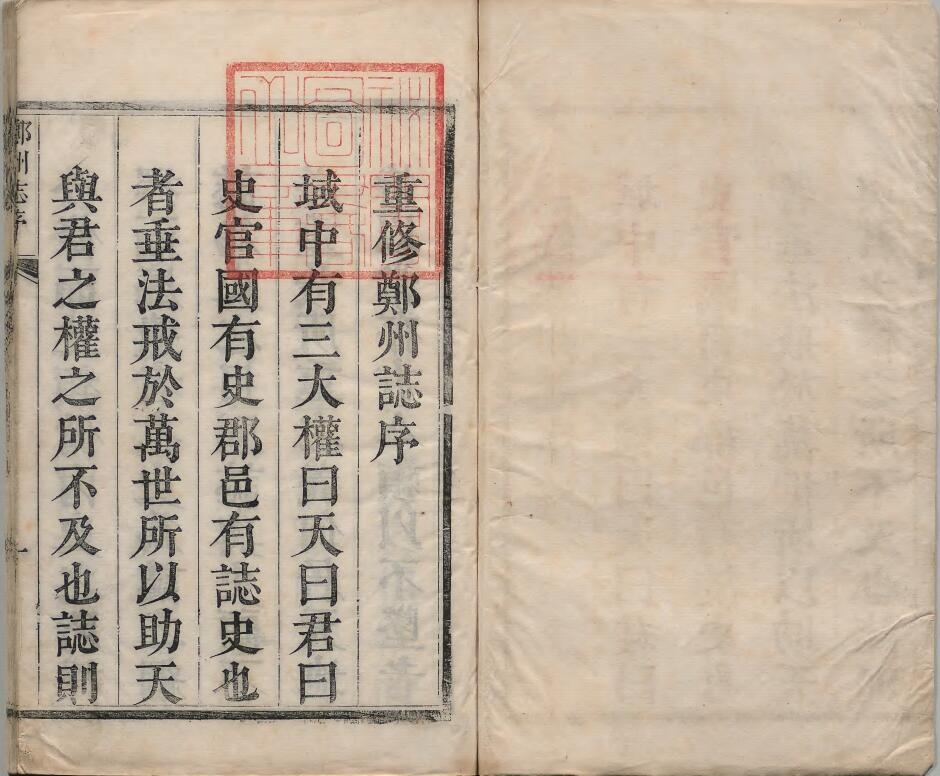 重修鄭州誌序
域中有三大權曰天曰君曰
史官國有史郡邑有誌史也
者垂法戒於萬世所以助天
與君之權之所不及也誌則
鄭州志序
一